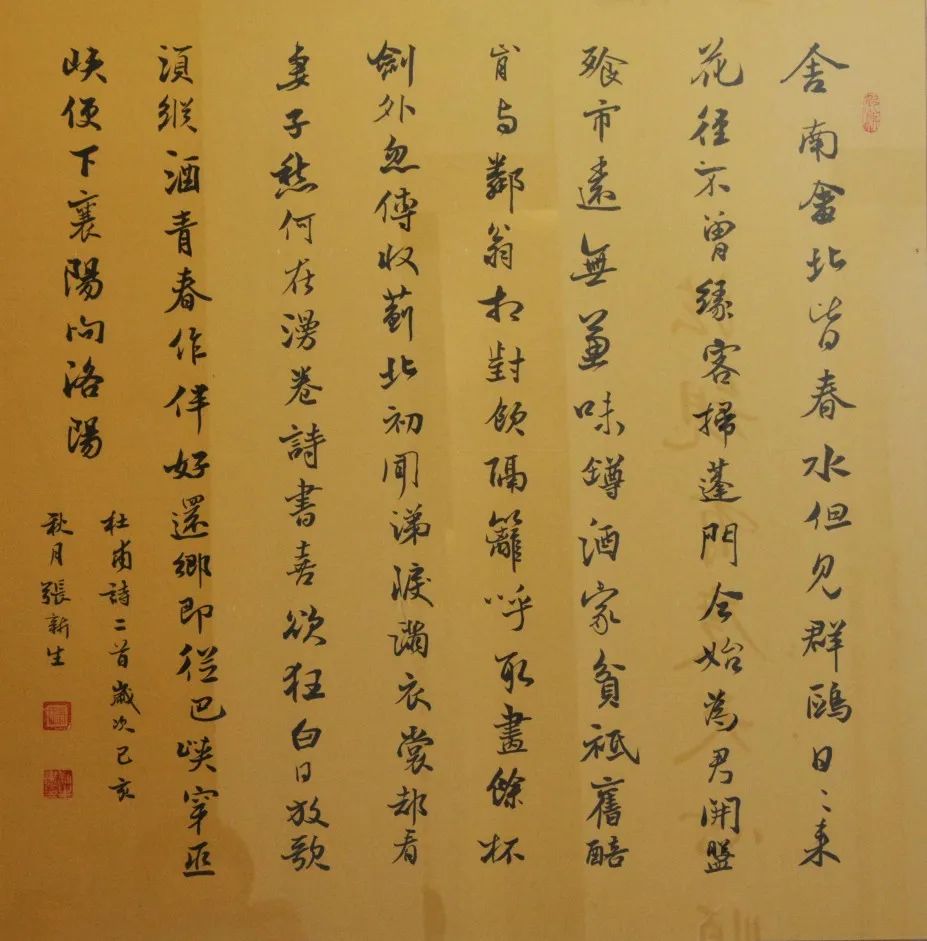 舍南舍北皆春水但見群鷗日〻來
花徑不曾緣客掃蓬門今始為君開盤
飱市遠無兼味罇酒家貧祗舊醅
肯与鄰翁相對飲隔籬呼取盡餘杯
劍外忽傳收薊北初聞涕淚滿衣裳却看
妻子愁何在漫卷詩書喜欲狂白日放歌
須縱酒青春作伴好還鄉即從巴峽穿巫
峽便下襄陽向洛陽
杜甫詩二首歲次己亥
秋月張新生